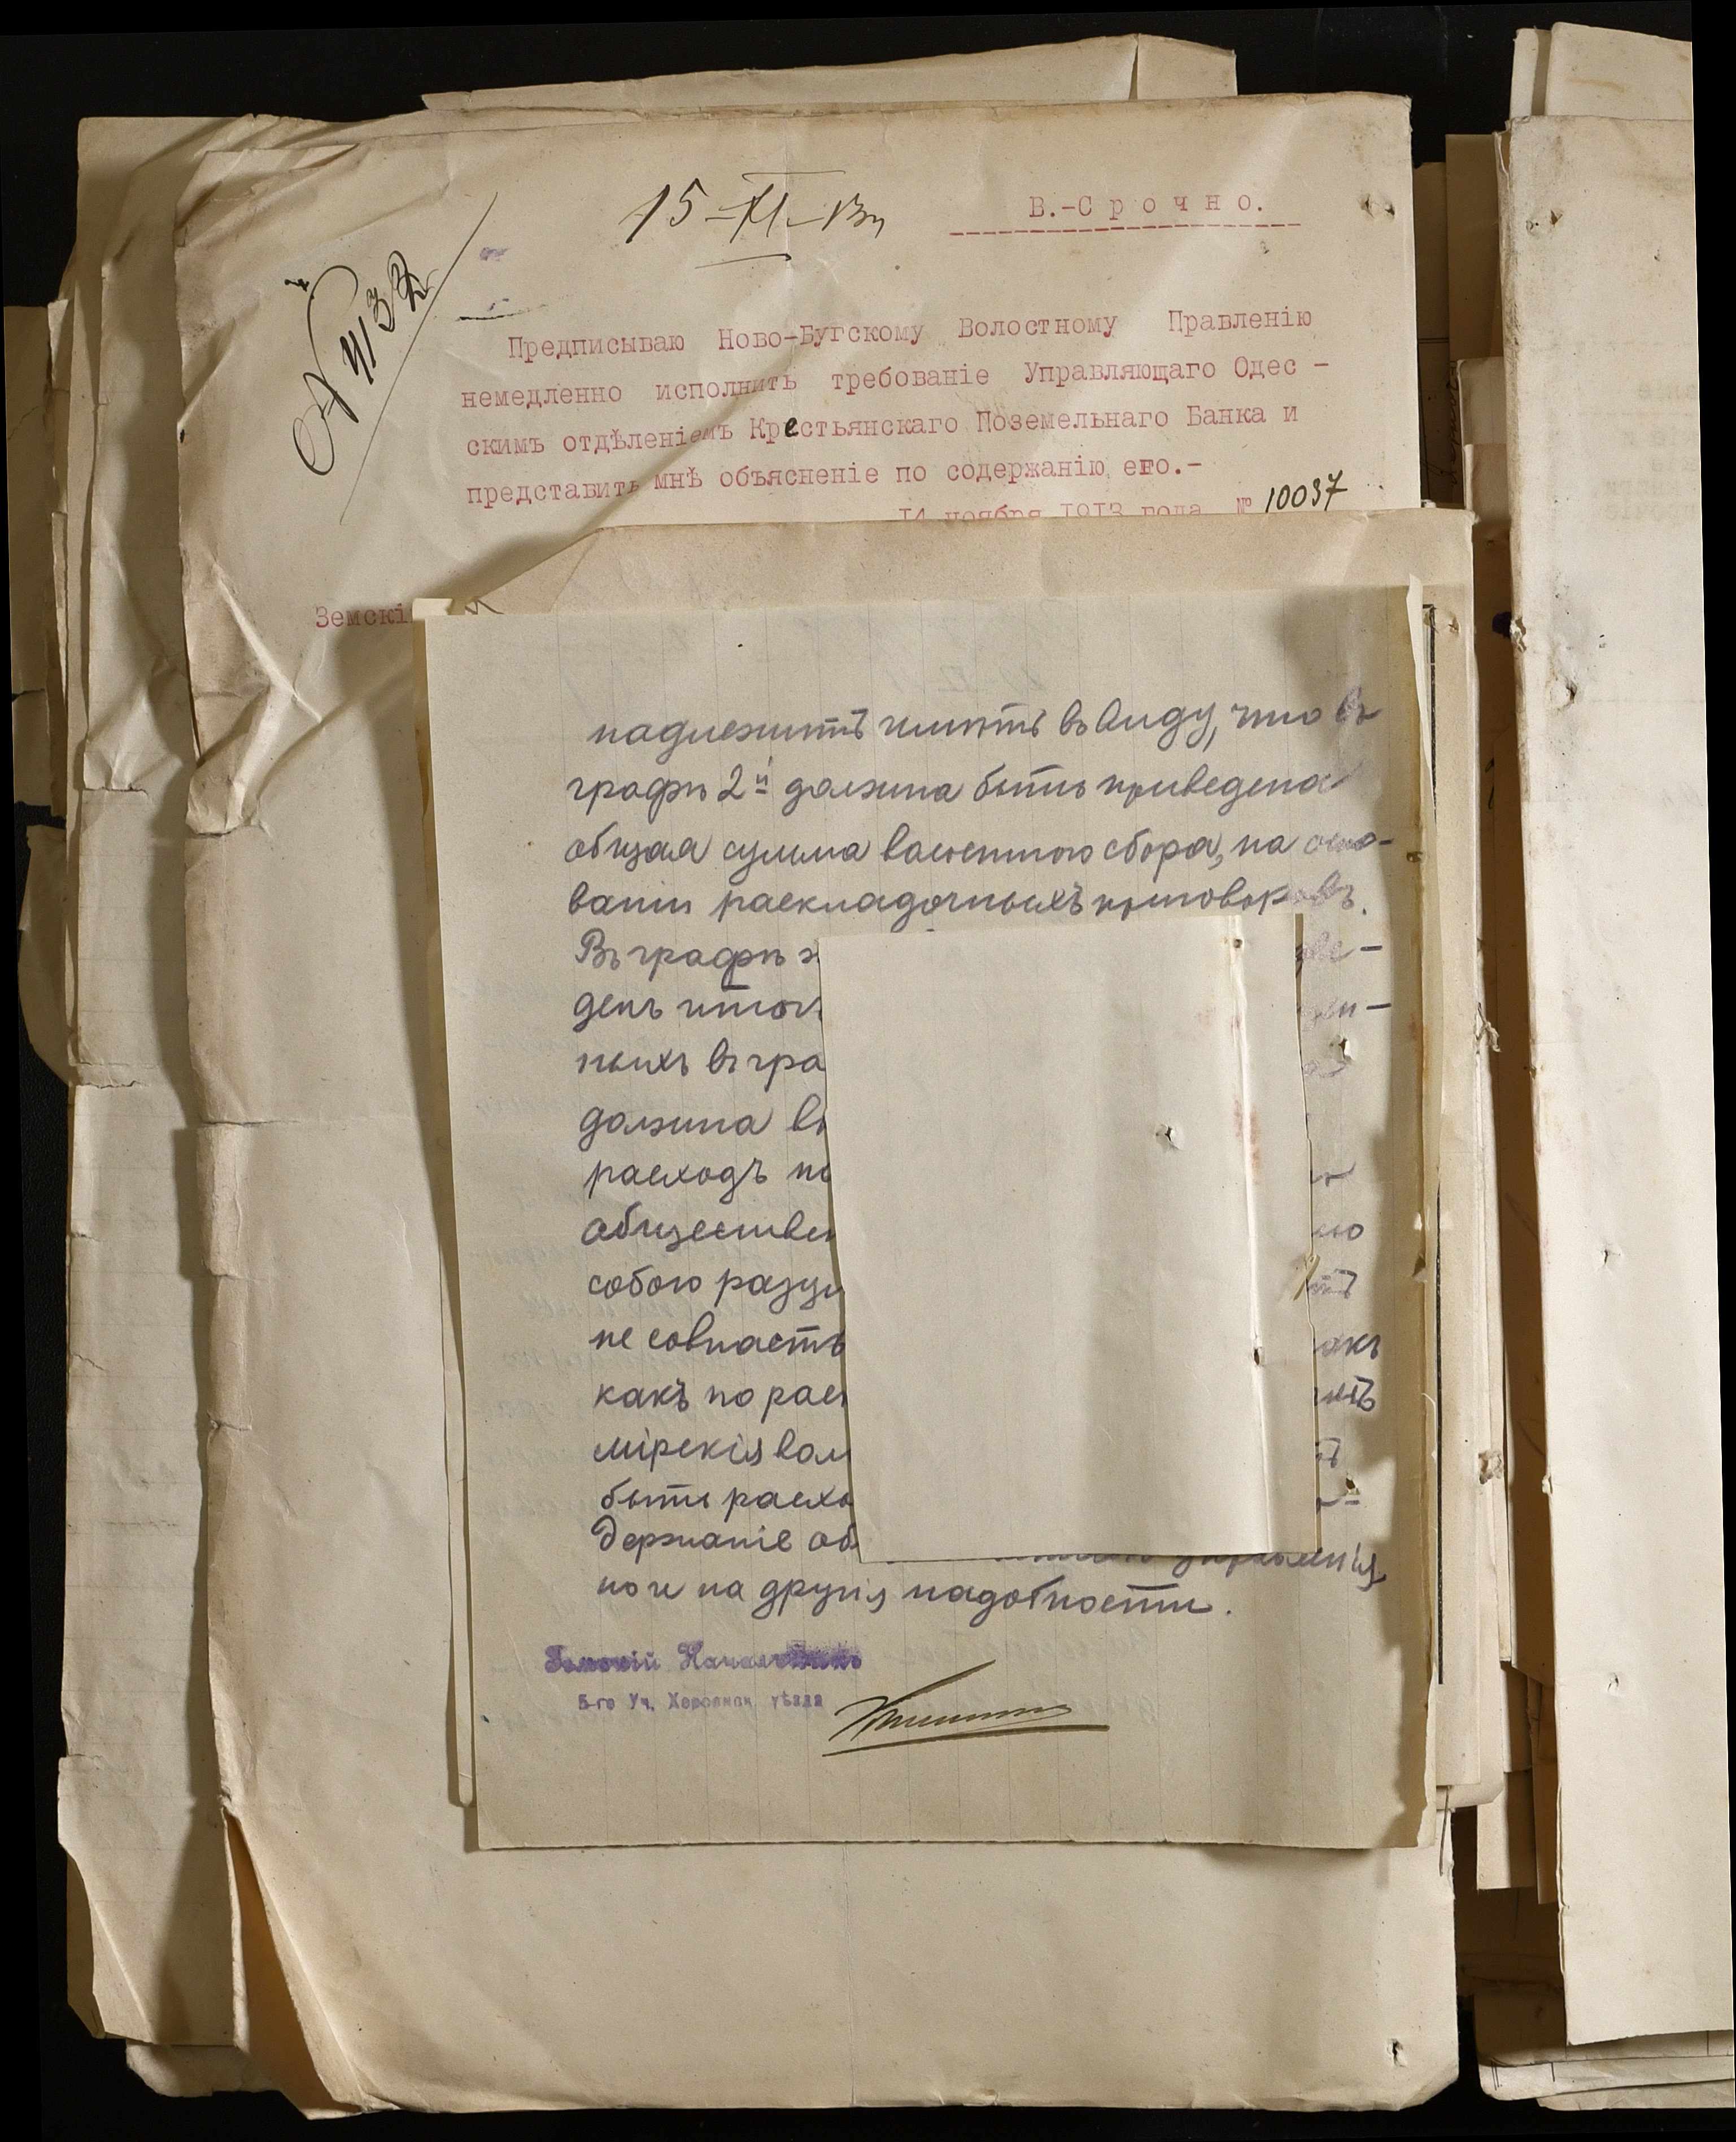 15-XI-13 г
В.-Срочно.
№ 4132
Предписываю Ново-Бугскому Волостному Правленію
немедленно исполнить требованіе Управляющаго Одес -
скимъ отдѣленіемъ Крестьянскаго Поземельнаго Банка и
представить мнѣ объясненіе по содержанію его.-
14 ноября 1913 года № 10037
Земскі
надлежитъ имѣть въ виду, что въ
графѣ 2й должна быть приведена
общая сумма волостного сбора, на осно-
ваніи раскладочныхъ приговоровъ.
Въ графѣ
денъ итог
ныхъ въ гра
должна въ
расходъ по
обществен
собою разум
не совпасть акъ
какъ по рас
мірскія вол
быть расхо
держаніе об управленія
но и на другія надобности.
Земскій Начальникъ
5-го Уч. Херсонск. уѣзда